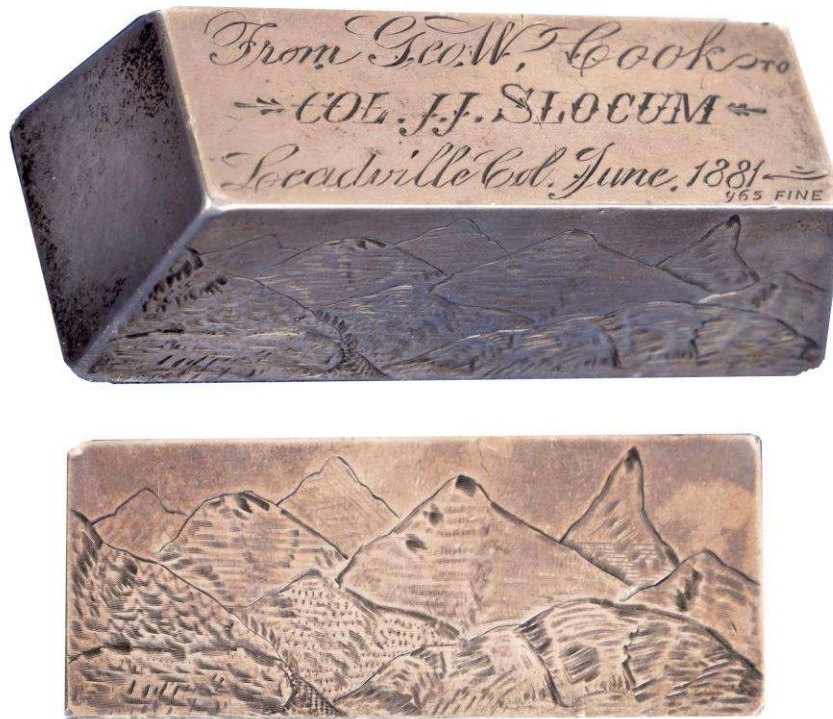 From Geo.W. Cook TO
COL. J.J. SLOCUM
Leadville Col. June. 1881
965 FINE